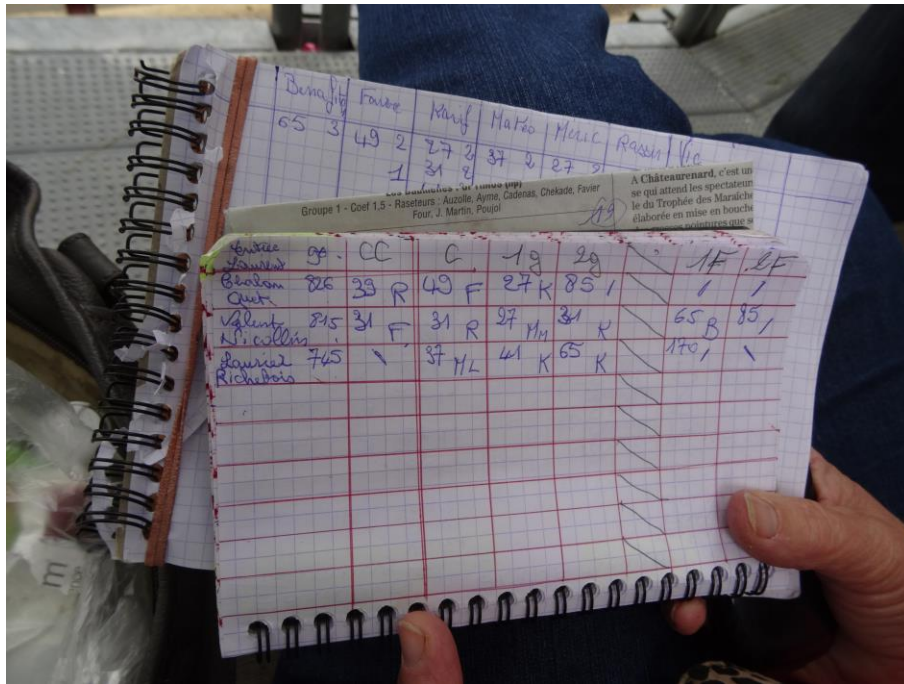 Farre Karif Matéo Méric Rassir Vic
65 3 49 2 27 2 37 2 27
1 31 2
Groupe 1 - Coef 1,5 - Raseteurs : Auzolle, Ayme, Cadenas, Chekade, Favier
Four, J. Martin, Poujol
A Châteaurenard, c'est un
se qui attend les spectateur
le du Trophée des Maraîch
élaborée en mise en bouch
pointures que s
Laurent CC C 1g 2g 1F 2F
826 39 R 49 F 27 K 85 / / /
Valent 815 31 F 31 R 27 31 K 65 B 85 /
Nicollin
Laurier 745 \ 37 ML 41 K 65 K 170 / \